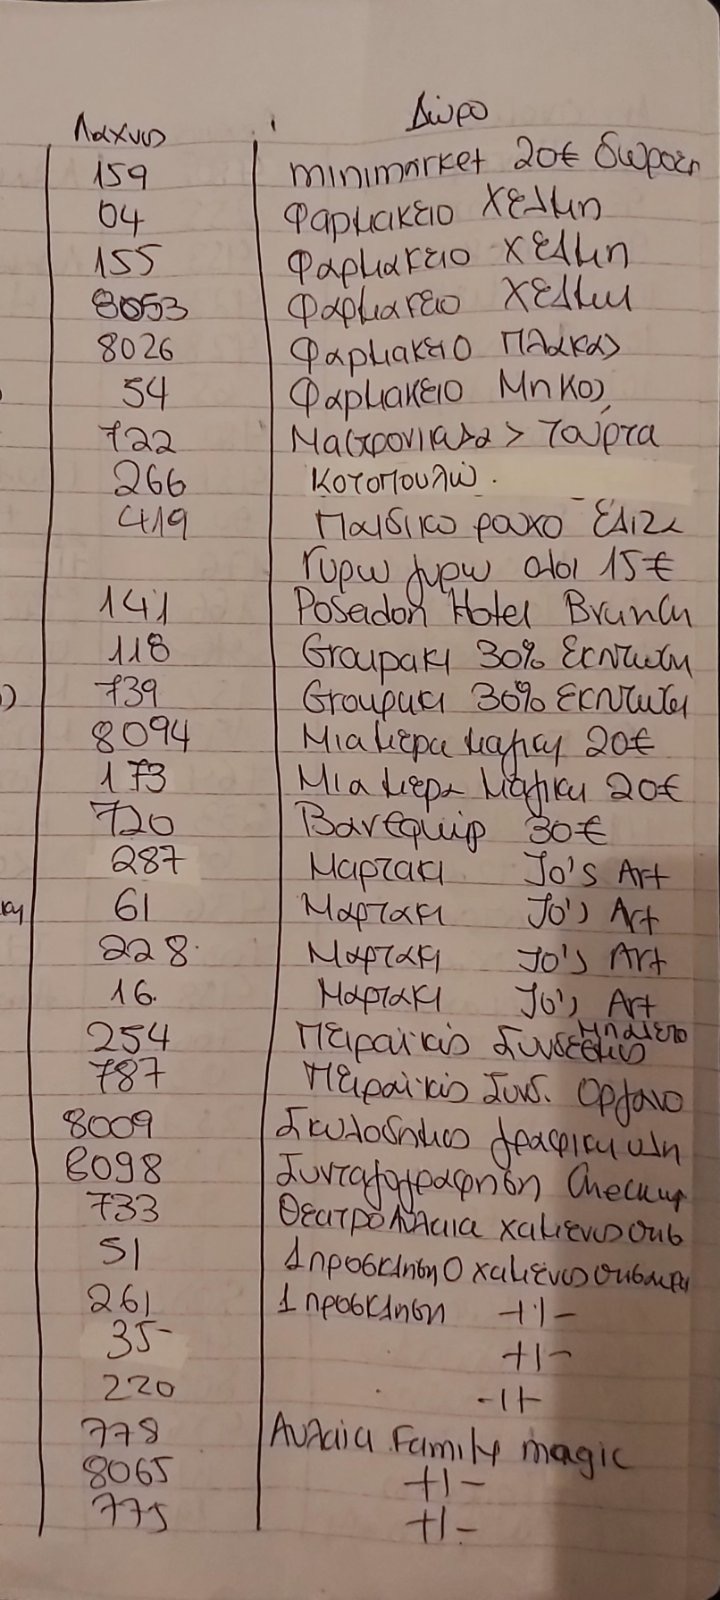 Λαχνος Δώρο
159 minimarket 20€ δωροεπ
04 Φαρμακειο Χελμη
155 Φαρμακειο Χελμη
8053 Φαρμακειο Χελμη
8026 Φαρμακειο Πλακας
54 Φαρμακειο Μηκος
722 > Τούρτα
266 Κοτοπουλω.
419 Παιδικο ρουχο
Γυρω γυρω ολοι 15€
141 Poseidon Hotel Brunch
118 Groupaki 30% εκπτωση
739 Groupaki 30% εκπτωση
8094 Μια μερα μαγικη 20€
173 Μια μερα μαγικη 20€
720 30€
287 Μαρτακι Jo's Art
61 Μαρτακι Jo's Art
228. Μαρτακι Jo's Art
16. Μαρτακι Jo's Art
254 Πειραϊκός Συνδεσμος Μπαλετο
787 Πειραϊκός Συνδ. Οργανο
8009 γραφικη υλη
8098 Συνταγογραφηση Checkup
733 Θεατρο Αυλαια χαμενος θησ
51 1 προσκληση Ο χαμενος
261 1 προσκληση -+|-
35 +|-
220 -|+
778 Αυλαια Family magic
8065 +|-
775 +|-